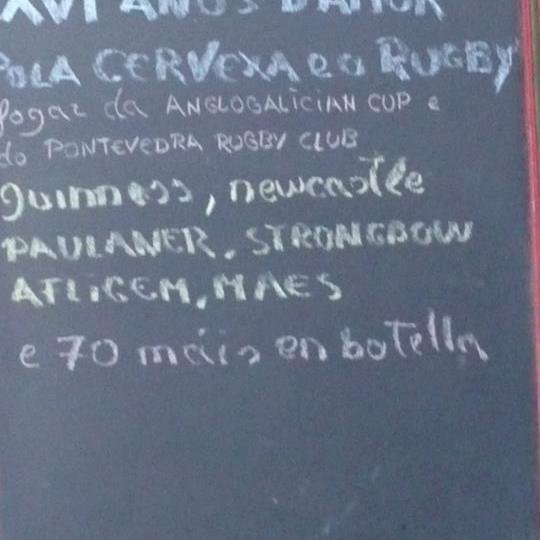 XVI ANOS D'AMOR
POLA CERVEXA e o RUGBY
fogar da ANGLOGALICIAN CUP e
do PONTEVEDRA RUGBY CLUB
guinness, newcastle
PAULANER, STRONGBOW
AFLIGEM, MAES
e 70 máis en botella